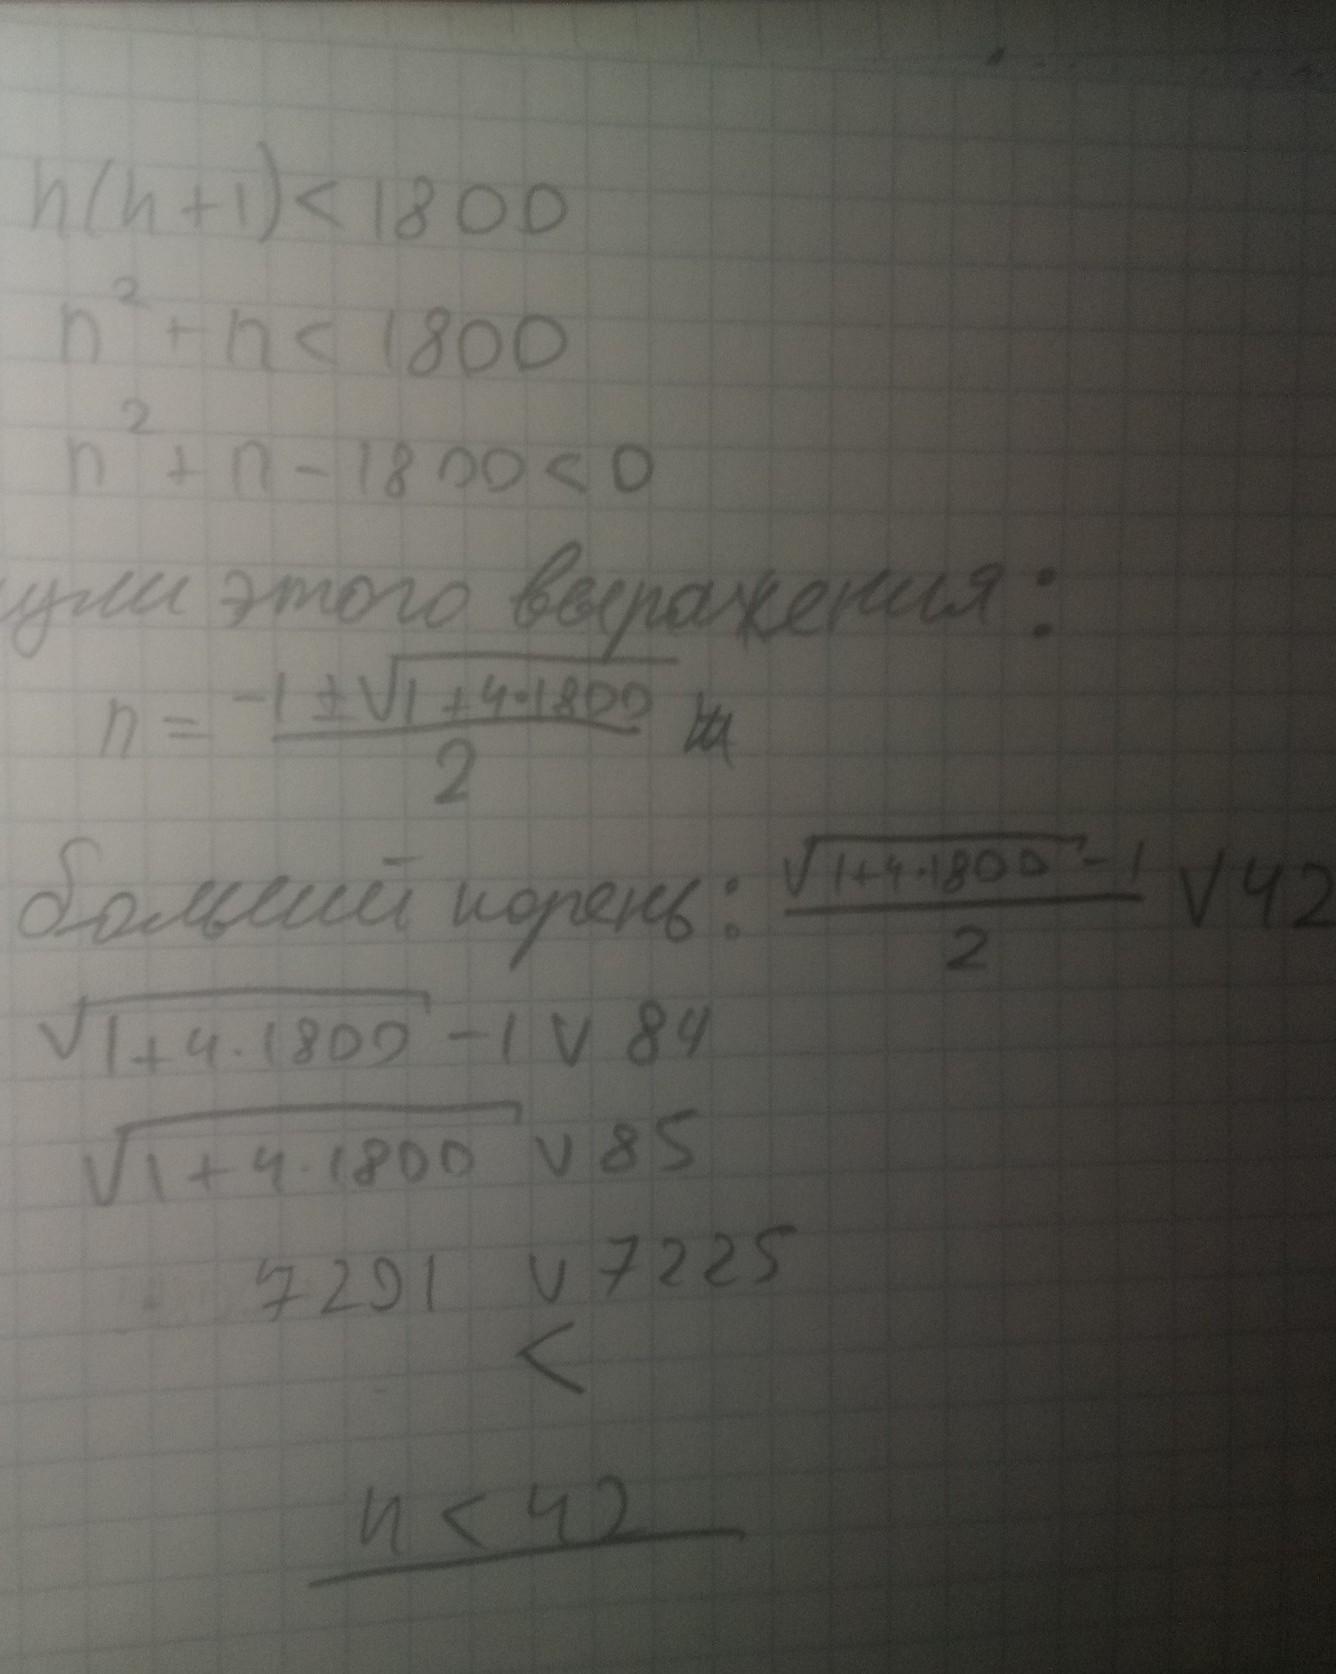 n(n+1)<1800
n²+n<1800
n²+n-1800<0
нули этого выражения:
n = (-1±√(1+4·1800))/2
больший корень: (√(1+4·1800) -1)/2 V 42
√(1+4·1800) -1 V 84
√(1+4·1800) V 85
7201 V 7225
<
n < 42